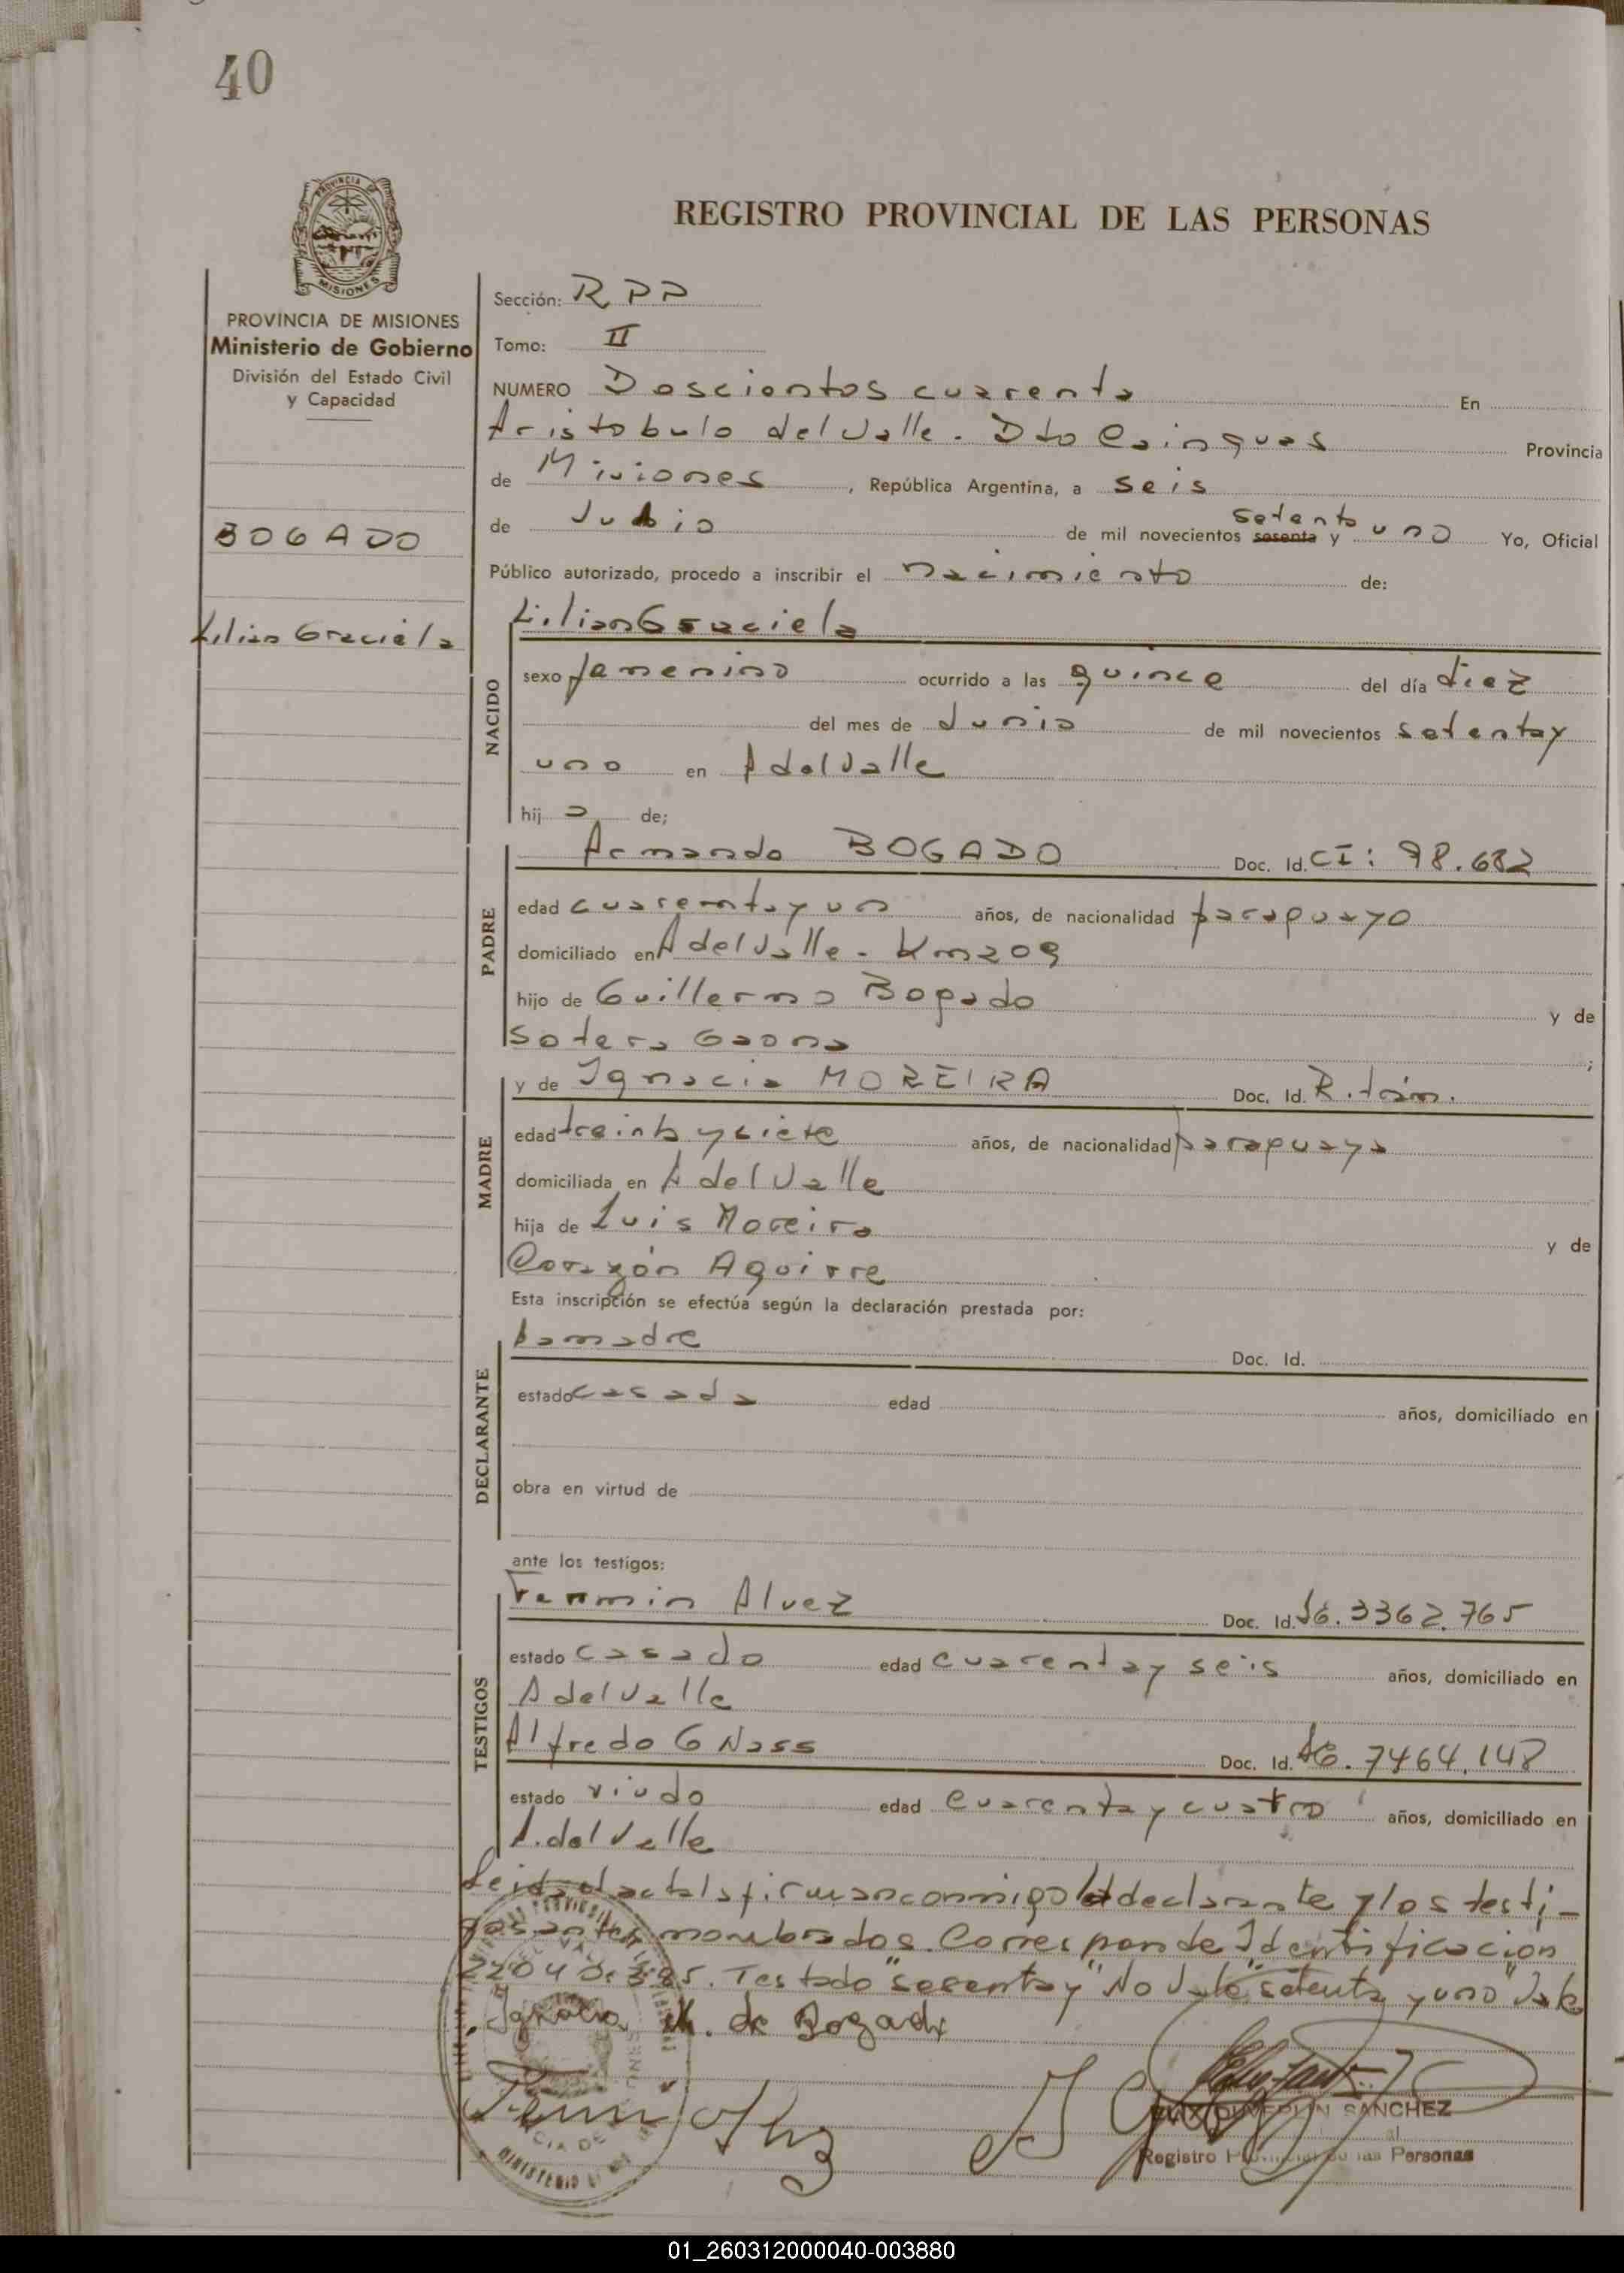 40
PROVINCIA DE
MISIONES
REGISTRO PROVINCIAL DE LAS PERSONAS
PROVINCIA DE MISIONES
Ministerio de Gobierno
División del Estado Civil
y Capacidad
BOGADO
Lilian Graciela
Sección: RPP
Tomo: II
NUMERO Doscientos cuarenta En
Aristobulo del Valle. Dto Cainguas Provincia
de Misiones, República Argentina, a seis
setenta
de Julio de mil novecientos sesenta y uno Yo, Oficial
Público autorizado, procedo a inscribir el nacimiento de:
Lilian Graciela
NACIDO
sexo femenino ocurrido a las quince del día diez
del mes de Junio de mil novecientos setenta y
uno en A del Valle
hij a de;
PADRE
Armando BOGADO Doc. Id. CI: 98.682
edad cuarenta y un años, de nacionalidad paraguayo
domiciliado en A del Valle - Km 209
hijo de Guillermo Bogado y de
Sotera Gaona ;
MADRE
y de Ignacia MOREIRA Doc. Id. R. trám.
edad treinta y siete años, de nacionalidad paraguaya
domiciliada en A del Valle
hija de Luis Moreira y de
Corazón Aguirre
Esta inscripción se efectúa según la declaración prestada por:
DECLARANTE
La madre Doc. Id.
estado casada edad años, domiciliado en
obra en virtud de
ante los testigos:
TESTIGOS
Fermin Alvez Doc. Id. 3362.765
estado casado edad cuarenta y seis años, domiciliado en
A del Valle
Alfredo G Nass Doc. Id. 7464.148
estado viudo edad cuarenta y cuatro años, domiciliado en
A. del Valle
Leida el acta la firman conmigo la declarante y los testi-
gos antes nombrados. Corresponde Identificacion
Testado "sesenta y" No Vale "setenta y uno" Vale
Ignacia M. de Bogado
SANCHEZ
Registro Provincial de las Personas
MINISTERIO
01_260312000040-003880